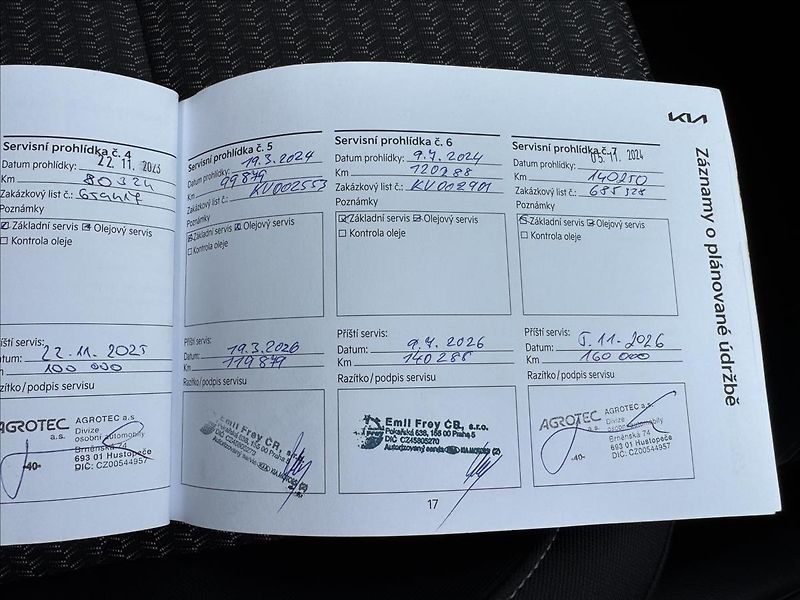 KIA
Záznamy o plánované údržbě
Servisní prohlídka č. 4
Datum prohlídky: 22 11. 2023
Km 80324
Zakázkový list č.:
Poznámky
Základní servis Olejový servis
Kontrola oleje
íští servis:
tum: 22.11.2025
100 000
Razítko/podpis servisu
AGROTEC a.s.
AGROTEC a.s.
Divize
osobní automobily
Brněnská 74
693 01 Hustopeče
DIČ: CZ00544957
-40-
Servisní prohlídka č. 5
Datum prohlídky: 19.3.2024
Km 99879
Zakázkový list č.: KV002553
Poznámky
Základní servis Olejový servis
Kontrola oleje
Příští servis:
Datum: 19.3.2026
Km 119879
Razítko/podpis servisu
Emil Frey ČR, s.r.o.
Pekařská 638, 155 00 Praha 5
DIČ CZ45805270
Autorizovaný servis KIA MOTORS (2)
Servisní prohlídka č. 6
Datum prohlídky: 9.7.2024
Km 120288
Zakázkový list č.: KV012901
Poznámky
Základní servis Olejový servis
Kontrola oleje
Příští servis:
Datum: 9.7.2026
Km 140288
Razítko/podpis servisu
Emil Frey ČR, s.r.o.
Pekařská 638, 155 00 Praha 5
DIČ CZ45805270
Autorizovaný servis KIA MOTORS (2)
Servisní prohlídka č. 7
Datum prohlídky: 05. 11. 2024
Km 140250
Zakázkový list č.: 685328
Poznámky
Základní servis Olejový servis
Kontrola oleje
Příští servis:
Datum: 5.11.2026
Km 160 000
Razítko/podpis servisu
AGROTEC a.s.
AGROTEC a.s.
Divize
osobní automobily
Brněnská 74
693 01 Hustopeče
DIČ: CZ00544957
-40-
17